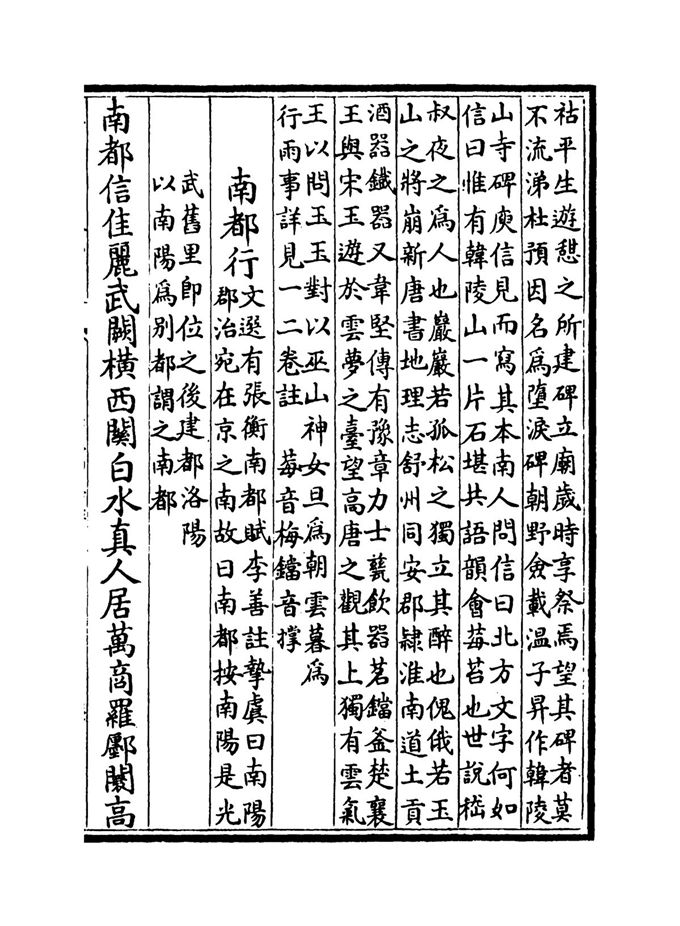 祜平生遊憩之所建碑立廟歲時享祭焉望其碑者莫
不流涕杜預因名爲墮淚碑朝野僉載温子昇作韓陵
山寺碑庾信見而寫其本南人問信曰北方文字何如
信曰惟有韓陵山一片石堪共語韻會莓苔也世說嵇
叔夜之爲人也巖巖若孤松之獨立其醉也傀俄若玉
山之將崩新唐書地理志舒州同安郡隸淮南道土貢
酒器鐵器又韋堅傳有豫章力士甆飲器茗鐺釜楚襄
王與宋玉遊於雲夢之臺望高唐之觀其上獨有雲氣
王以問玉玉對以巫山神女旦爲朝雲暮爲
行雨事詳見一二卷註　莓音梅鐺音撑
南都行
文選有張衡南都賦李善註摯虞曰南陽
郡治宛在京之南故曰南都按南陽是光
武舊里即位之後建都洛陽
以南陽爲别都謂之南都
南都信佳麗武闕橫西關白水真人居萬商羅鄽闤高